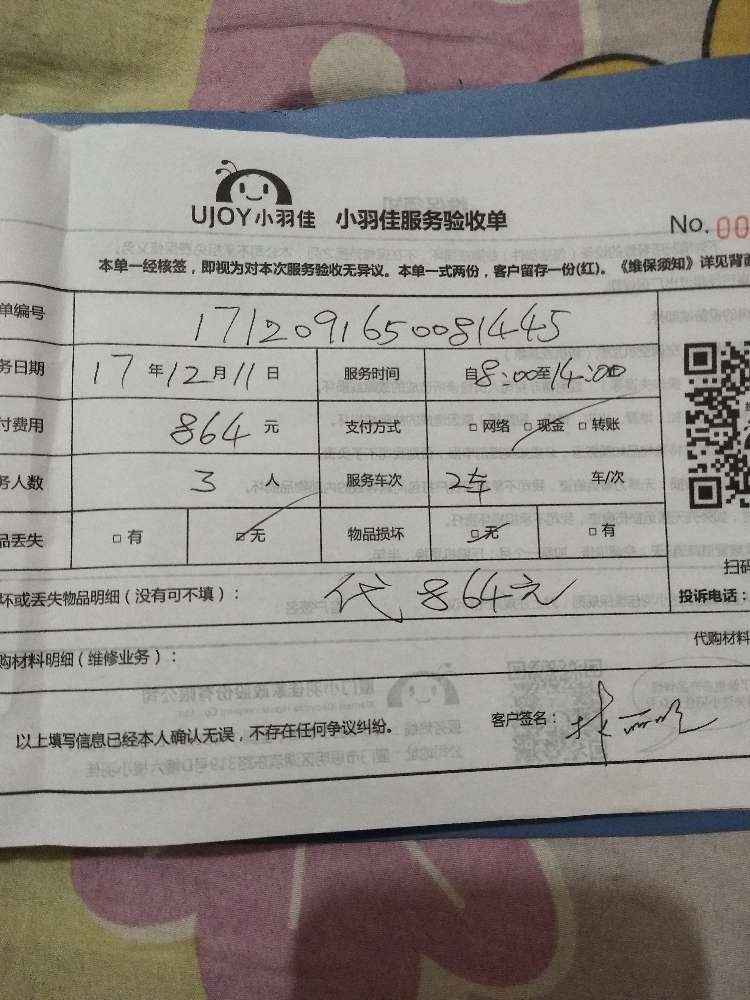 UJOY小羽佳 小羽佳服务验收单
No. 00
本单一经核签，即视为对本次服务验收无异议。本单一式两份，客户留存一份(红)。《维保须知》详见背面
单编号 1712091650081445
务日期 17年12月11日 服务时间 自8:00至14:00
付费用 864元 支付方式 □网络 □现金 □转账
务人数 3人 服务车次 2车 车/次
品丢失 □有 □无 物品损坏 □无 □有
扫码
坏或丢失物品明细（没有可不填）： 代864元 投诉电话：
购材料明细（维修业务）： 代购材料
以上填写信息已经本人确认无误，不存在任何争议纠纷。 客户签名：